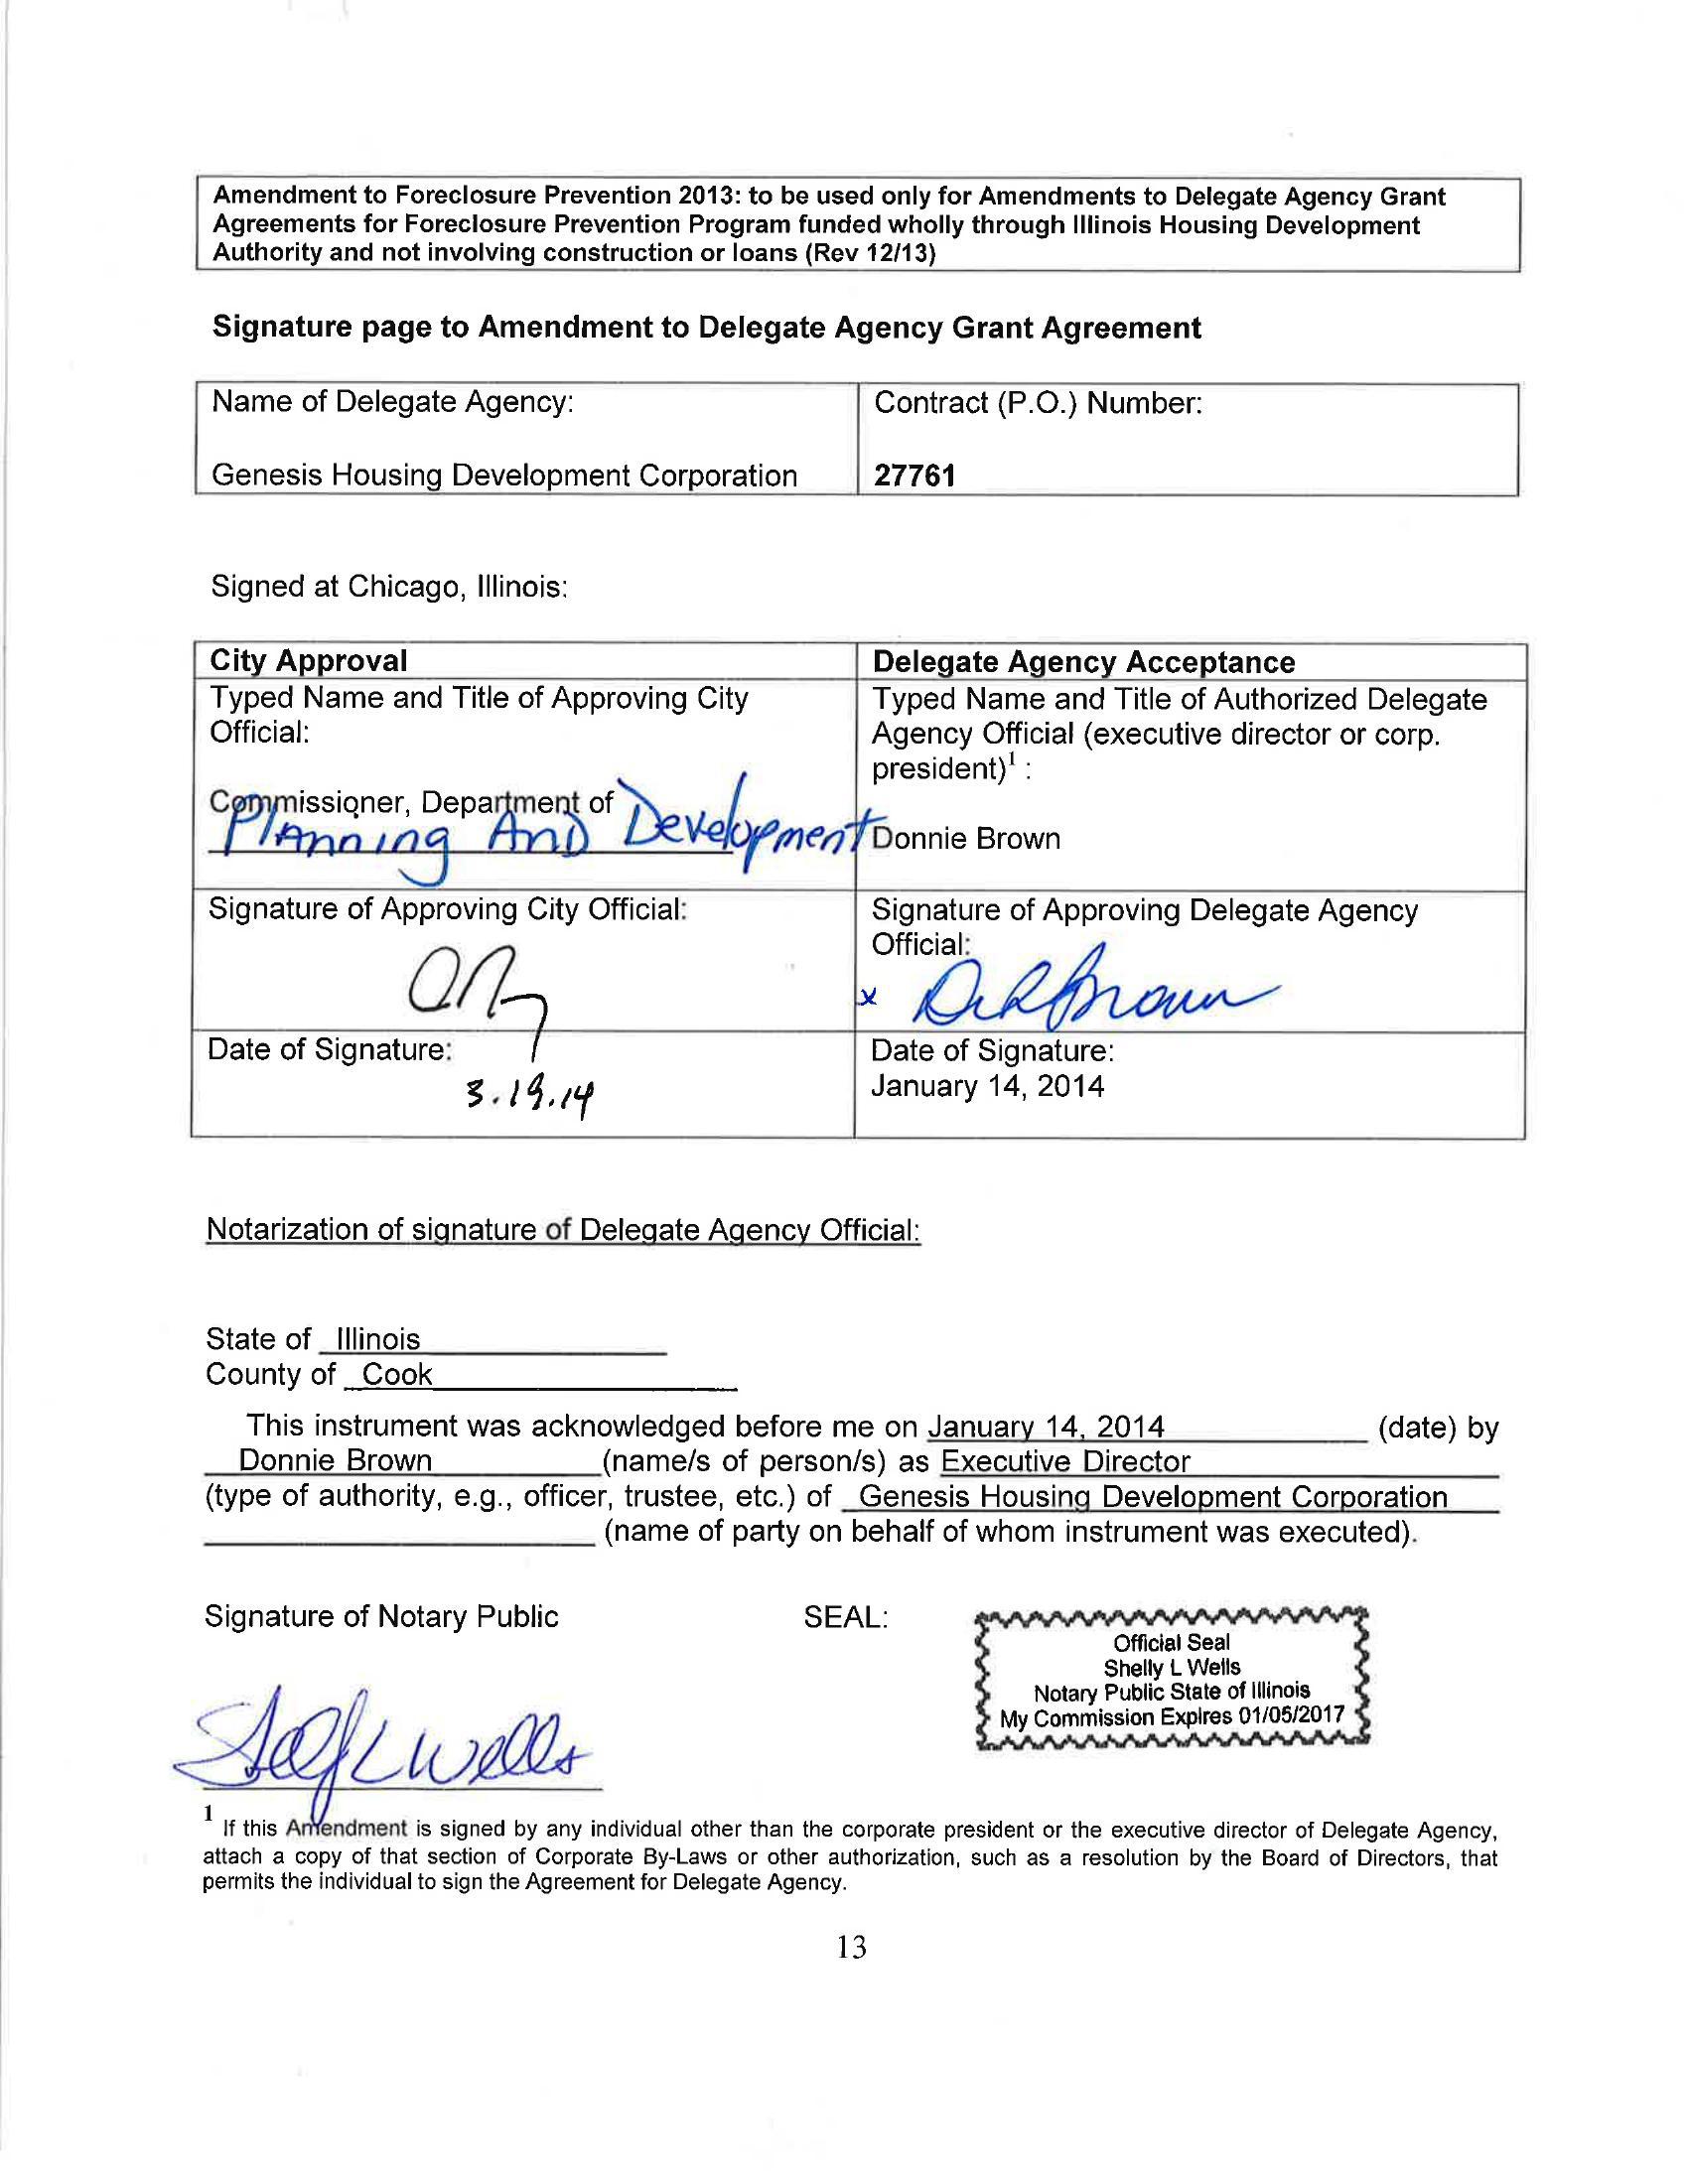 Amendment to Foreclosure Prevention 2013: to be used only for Amendments to Delegate Agency Grant
Agreements for Foreclosure Prevention Program funded wholly through Illinois Housing Development
Authority and not involving construction or loans (Rev 12/13)
Signature page to Amendment to Delegate Agency Grant Agreement
Name of Delegate Agency:
Genesis Housing Development Corporation
Contract (P.O.) Number:
27761
Signed at Chicago, Illinois:
City Approval
Typed Name and Title of Approving City
Official:
Commissioner, Department of
Planning And Development
Delegate Agency Acceptance
Typed Name and Title of Authorized Delegate
Agency Official (executive director or corp.
president)¹ :
Donnie Brown
Signature of Approving City Official:
Signature of Approving Delegate Agency
Official:
x Brown
Date of Signature:
3.19.14
Date of Signature:
January 14, 2014
Notarization of signature of Delegate Agency Official:
State of Illinois
County of Cook
This instrument was acknowledged before me on January 14, 2014 (date) by
Donnie Brown (name/s of person/s) as Executive Director
(type of authority, e.g., officer, trustee, etc.) of Genesis Housing Development Corporation
(name of party on behalf of whom instrument was executed).
Signature of Notary Public
SEAL:
Official Seal
Shelly L Wells
Notary Public State of Illinois
My Commission Expires 01/05/2017
L Wells
1 If this Amendment is signed by any individual other than the corporate president or the executive director of Delegate Agency,
attach a copy of that section of Corporate By-Laws or other authorization, such as a resolution by the Board of Directors, that
permits the individual to sign the Agreement for Delegate Agency.
13